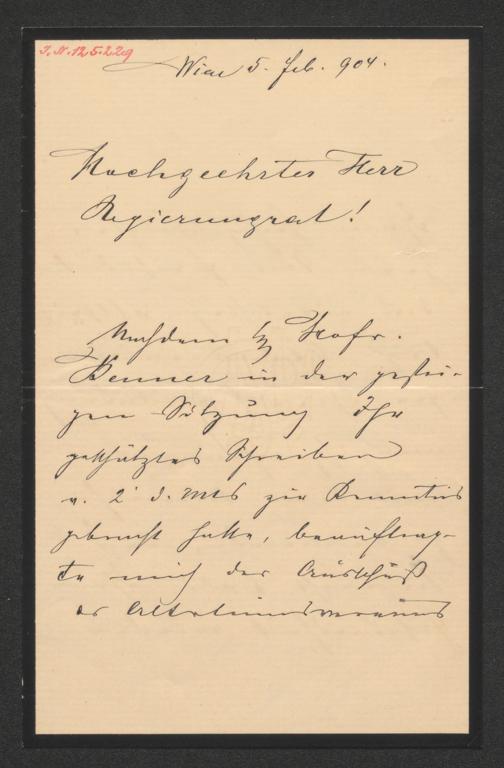 J.N. 125.229
Wien 5. Feb. 904.
Hochgeehrter Herr
Regierungsrat!
Nachdem H Hofr.
Kenner in der gestri-
gen Sitzung Ihr
geschätztes Schreiben
v. 2 d. Mts zur Kenntnis
gebracht hatte, beauftrag-
te mich der Ausschuß
des Altertumsvereines